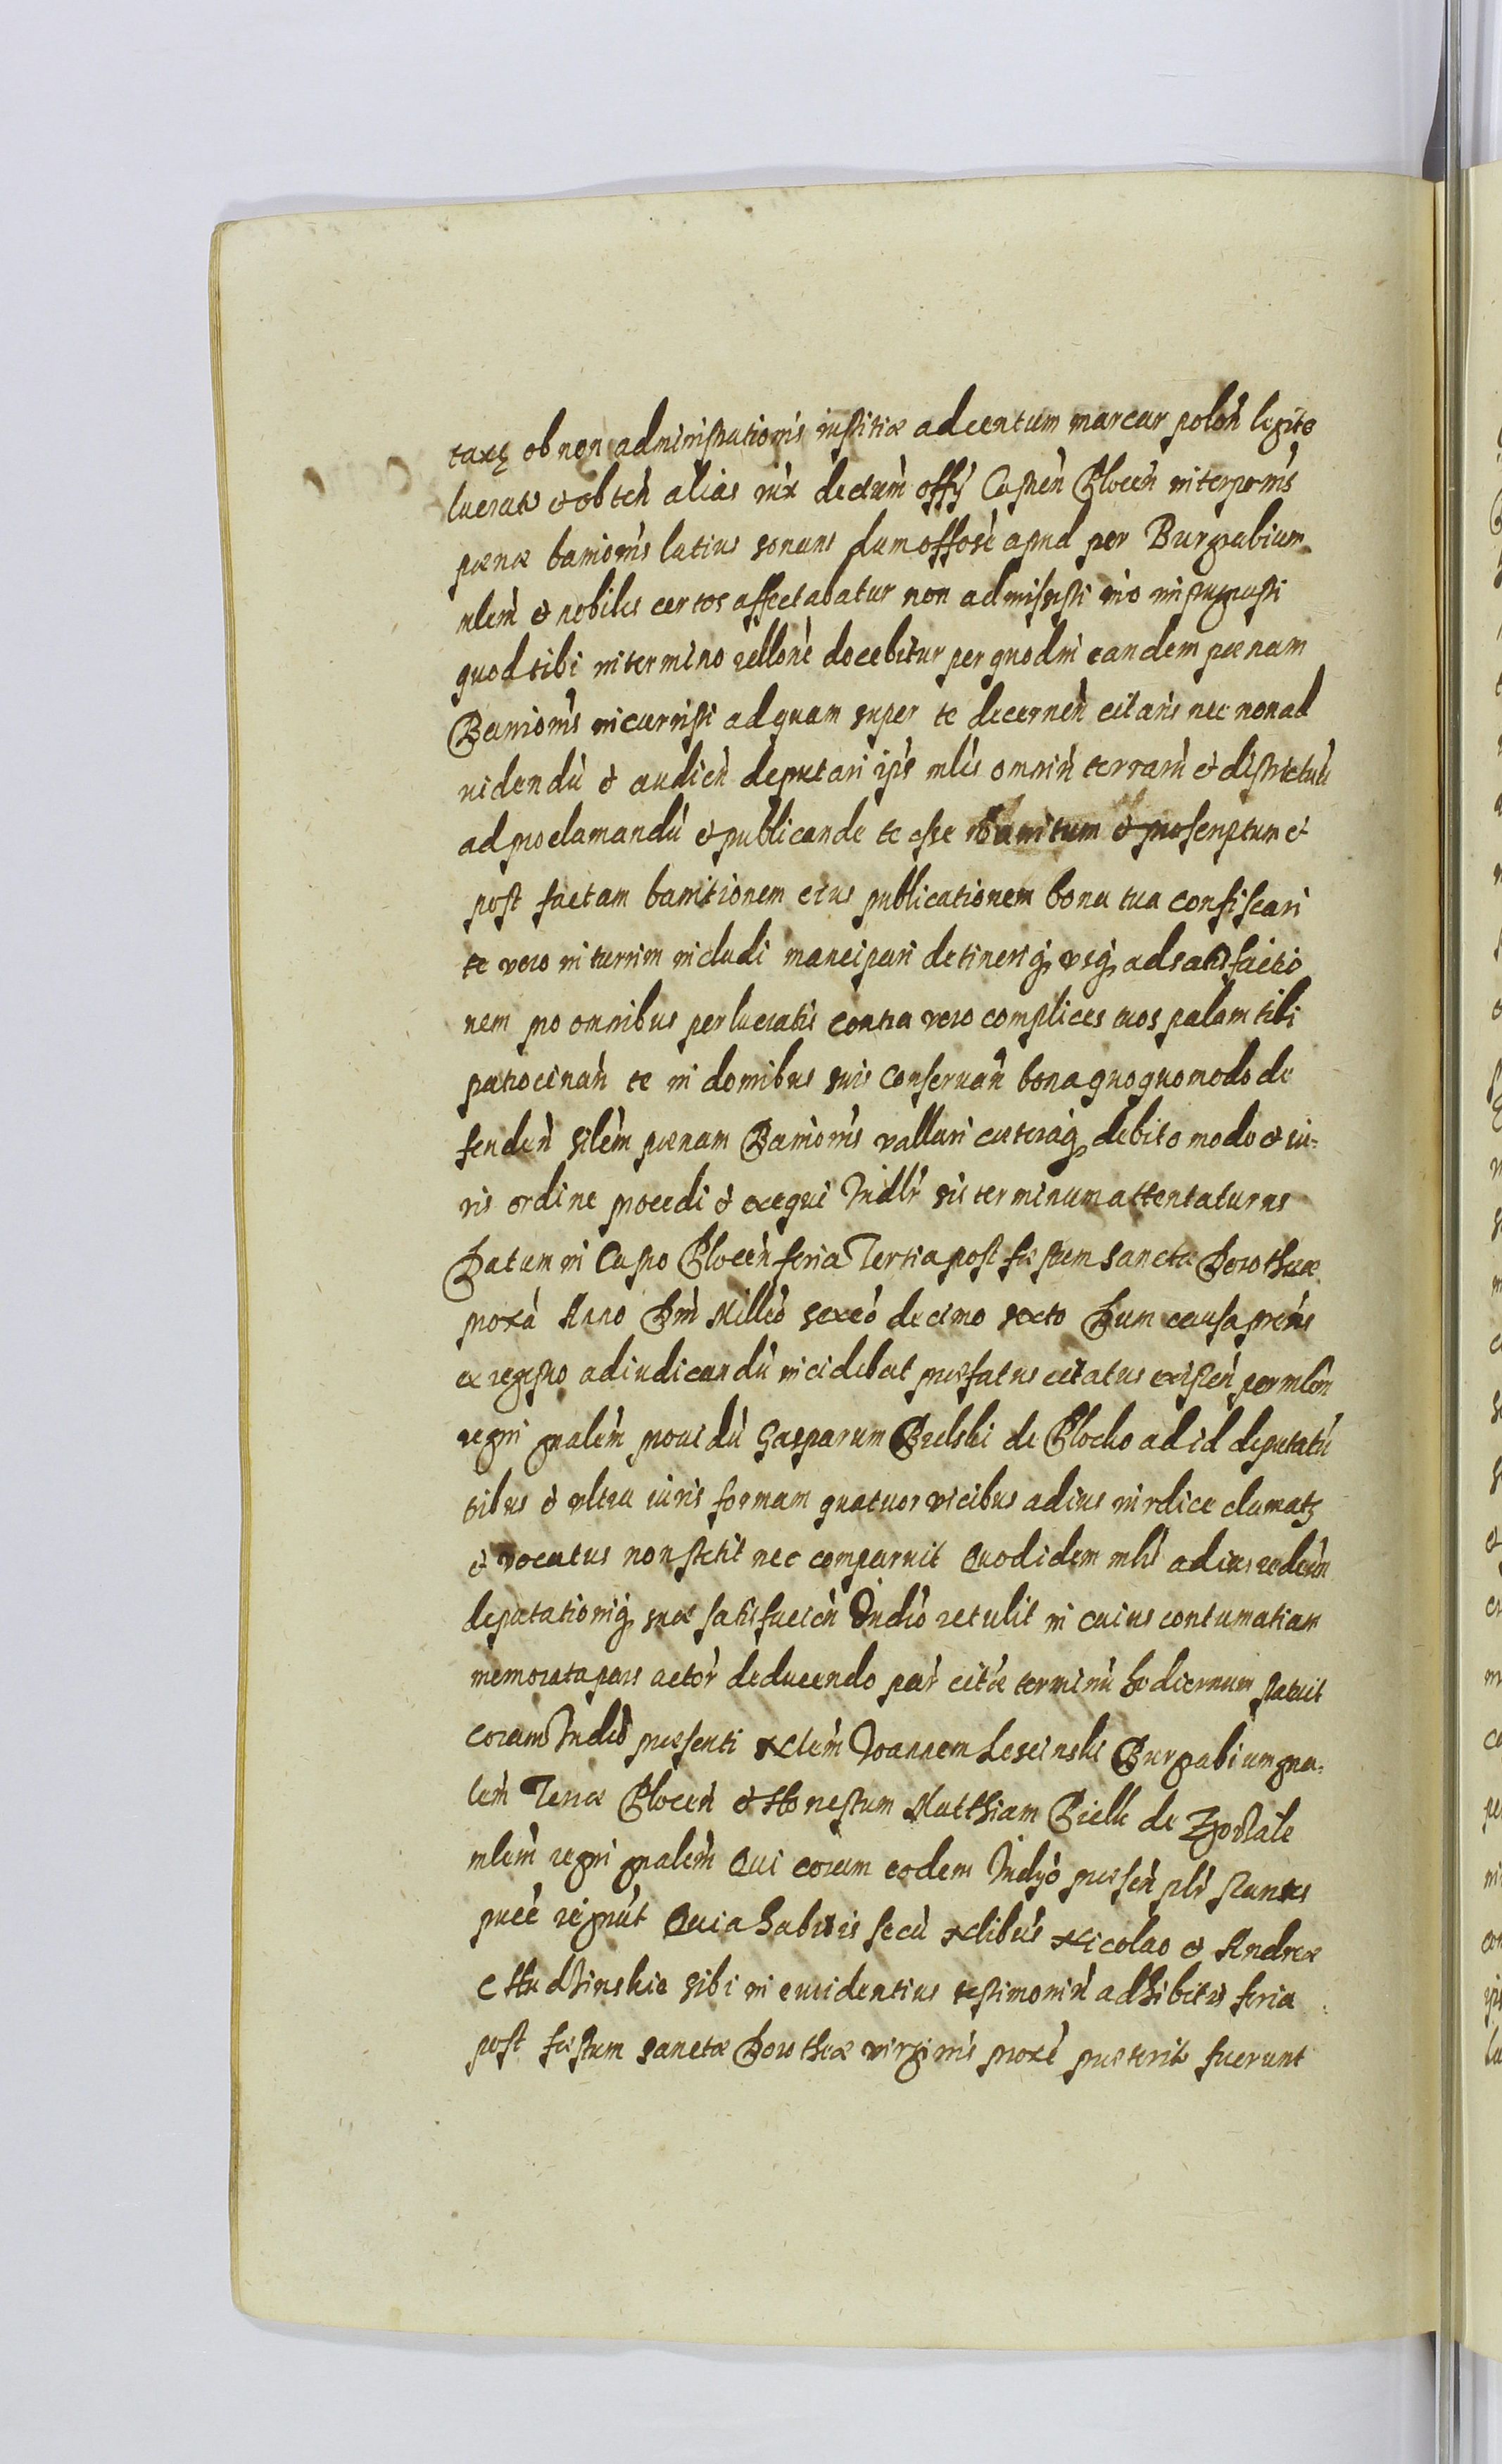 taxę ob non administrationis iustitiæ ad centum marcar polon legite
lucratis et obten alias iux dectum offÿ Castren Plocen interpoenis
pœnæ banionis latius sonans dum offose apud per Burgrabium
mlem et nobiles certos affectabatur non admisisti imo impugnasti
quod tibi in termino rellone docebitur per quod in eandem pœnam
Banionis incurristi ad quam super te decernen citaris nec non ad
uidendu et audien deputari ips mles omniu terraru et districtuu
ad proclamandu et publicande te esse Banitum et proscriptum et
post factam banitionem eius publicationem bona tua confiscari
te vero in turrim includi mancipari detineriq usq ad satisfactio
nem pro omnibus perlucratis contra vero complices tuos palam tibi
patrocinan te in domibus suis conseruan bona quoquomodo de
fenden silem pœnam Banionis vallari cæteraq debito modo et iu=
ris ordine procedi et exequi Indlr sis terminum attentaturus
Datum in Castro Plocen feria Tertia post fæstum Sanctæ Dorotheæ
proxa Anno Dni Milleo sexeo decimo sexto Dum causa prens
ex regestro adiudicandu incidebat præfatus citatus existen per mlem
regni gnalem prouidu Gasparum Bielski de Plocko ad id deputatu
tribus et ultra iuris formam quatuor vicibus ad ius indice clamatę
et vocatus non stetit nec comparuit Quod idem mlis ad ius redeun
deputationiq suæ satisfacien Indio retulit in cuius contumatiam
memorata pars actor deducendo par citæ terminu hodiernum statuit
coram Indio præsenti Nlem Joannem Lescinski Burgrabium gna=
lem Terræ Plocen et Honestum Matthiam Bielk de
mlem regni gnalem Qui coram eodem Indÿo præsen plr stantes
præe regnut Quia habitis secu Nlibus Nicolao et Andreæ
sibi in euidentius testimoniu adhibitis feria
post fæstum sanctæ Dorotheæ virginis proxe præterit fuerunt